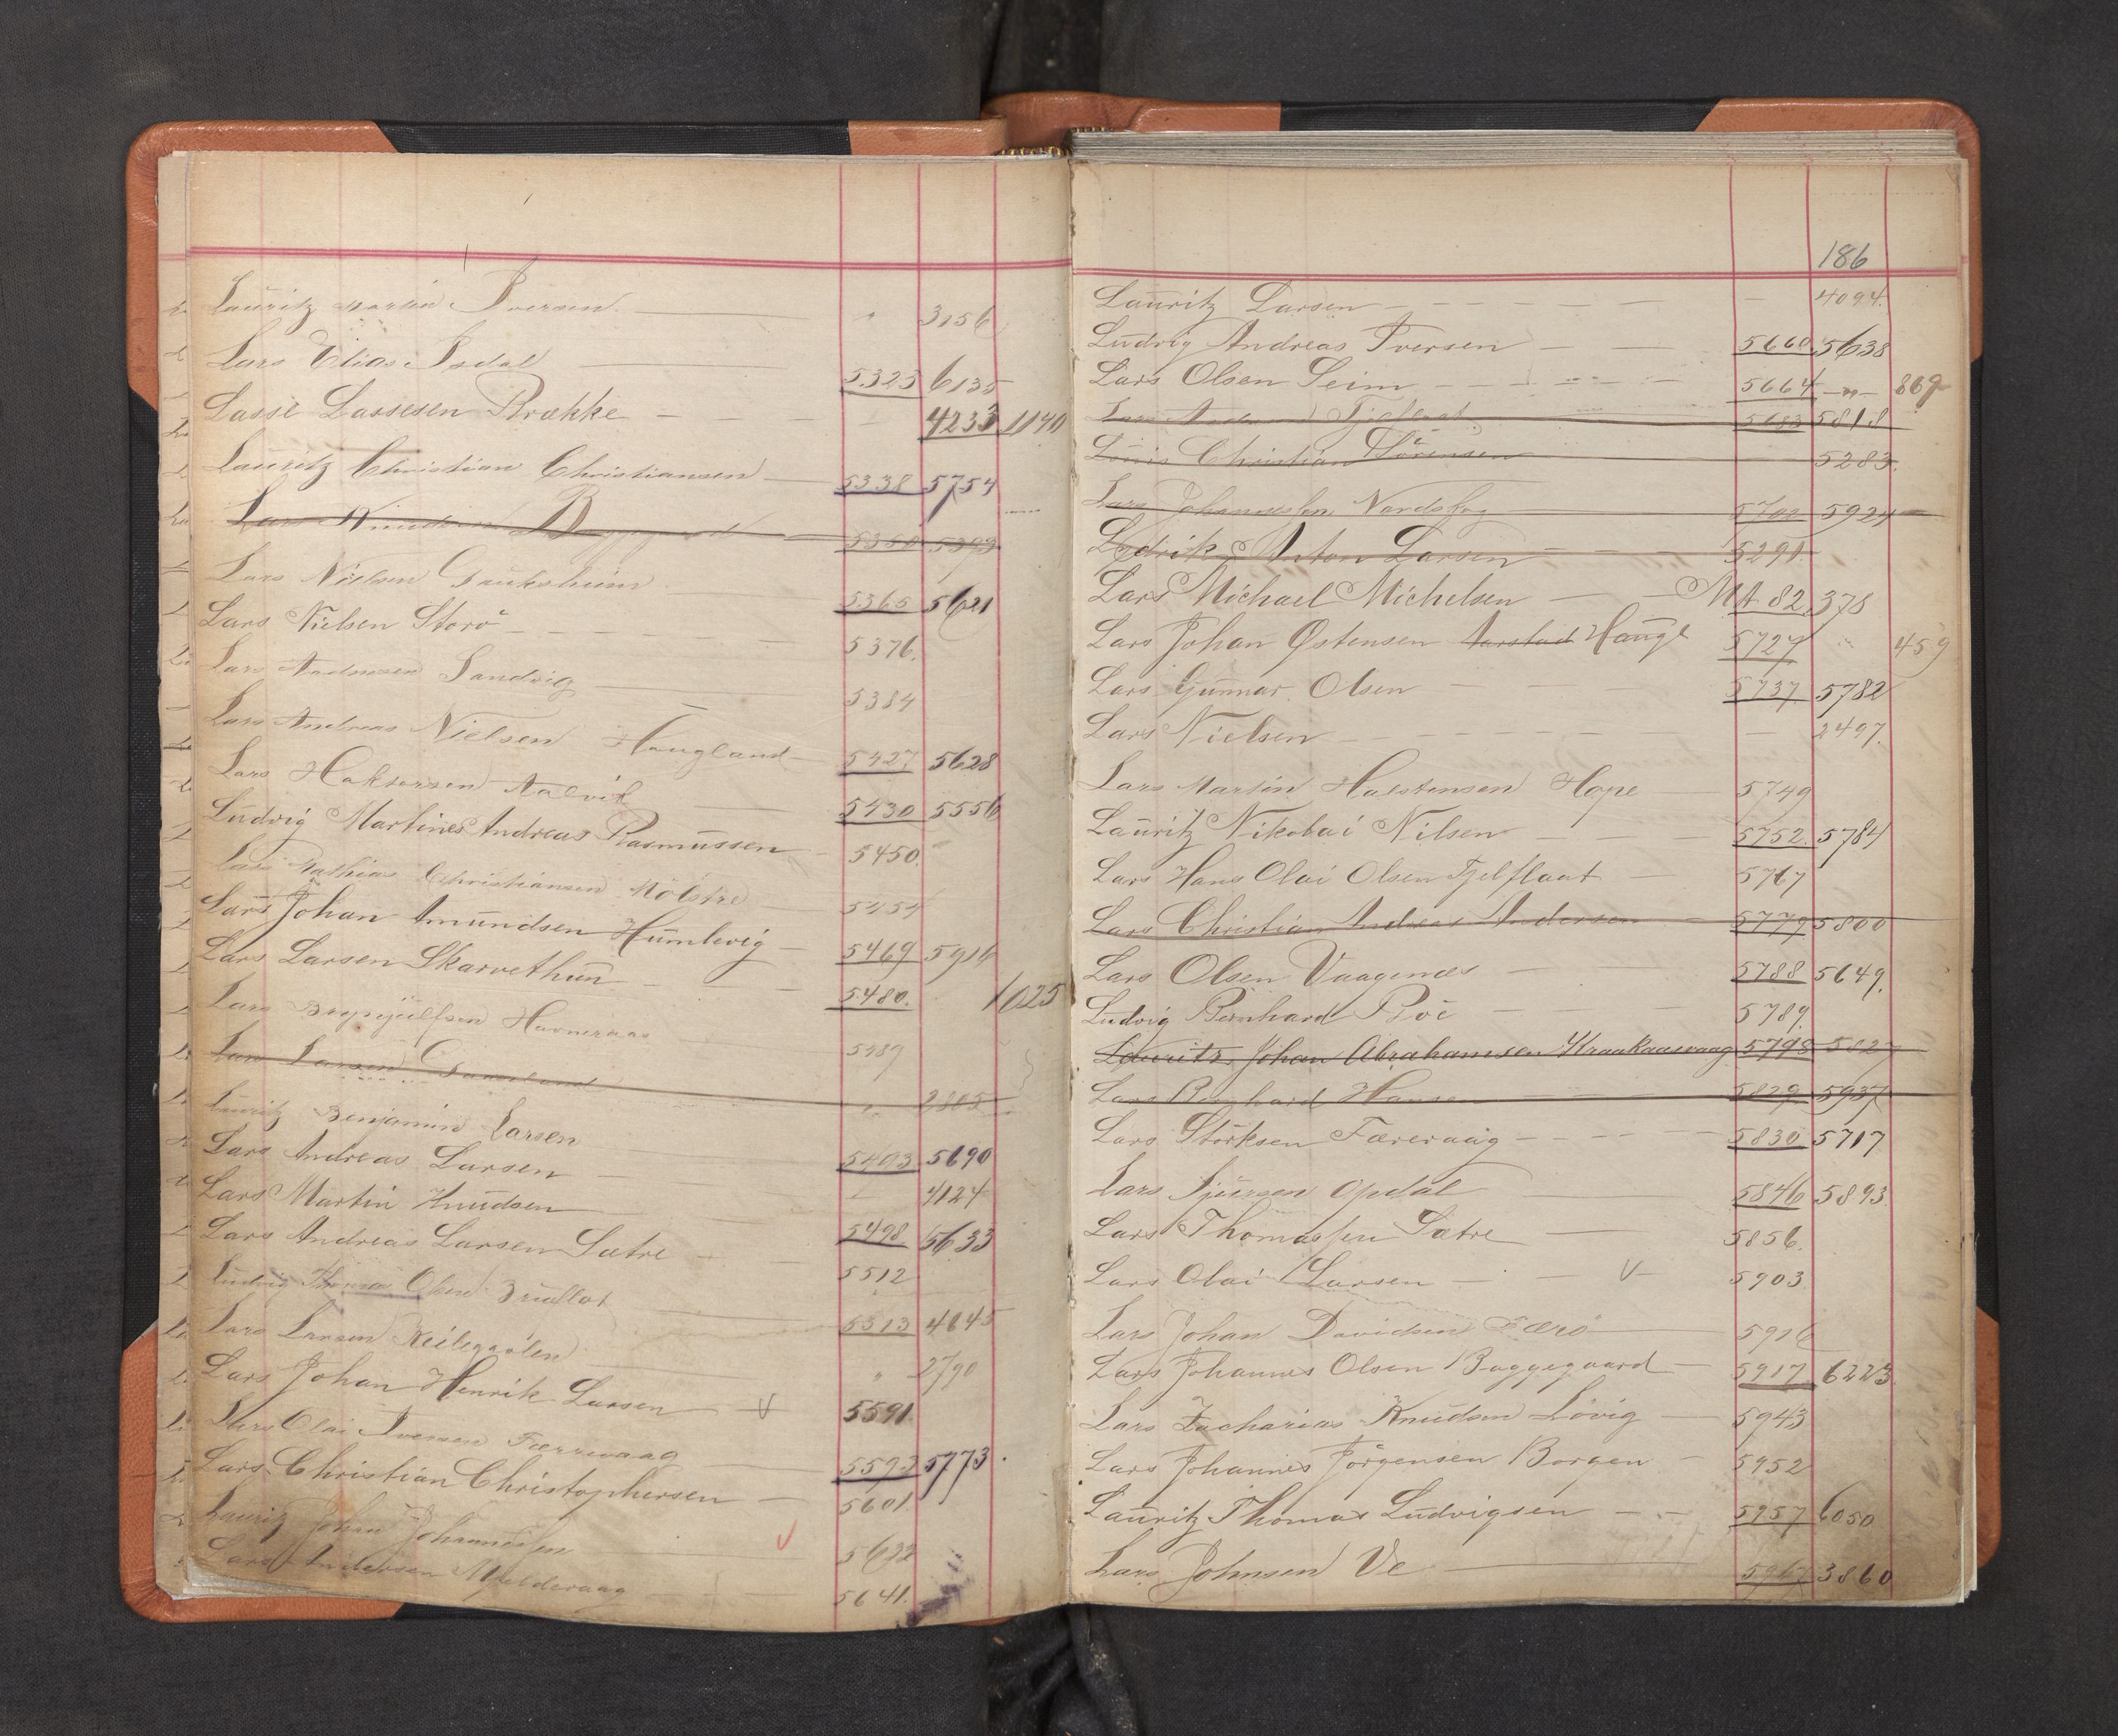 Lauritz Martin Iversen " 3156
Lars Elias Isdal 5325 6135
Lasse Lassesen Brække - 4233 1140
Lauritz Christian Christiansen 5338 5754
Lars Knudsen
Lars Nielsen 5365 5621
Lars Nielsen Storö 5376.
Lars Andersen Sandvig 5384
Lars Andreas Nielsen Haugland 5427 5628
Lars Haktorsen Aalvik 5430 5556
Ludvig Martines Andreas Rasmussen 5450.
Lars Mathias Christiansen Molstre 5454
Lars Johan Amundsen Humlevig 5469 5916
Lars Larsen Skarvethun 5480. 1025
Lars Brynjülfsen Havneraas 5489
Lars Larsen " 2805
Lauritz Benjamin Larsen 5493 5690
Lars Andreas Larsen 4124
Lars Martin Knudsen 5498 5633
Lars Andreas Larsen Sætre 5512
Ludvig Thomas Olsen 5513 4645
Lars Larsen " 2790
Lars Johan Henrik Larsen V 5591.
Lars Olai Iversen Færevaag 5593 5773.
Lars Christian Christophersen 5601.
Lauritz Johan Johannessen V 5622
Lars Andersen 5641.
186
Lauritz Larsen - 4094.
Ludvig Andreas Iversen 5660 5638
Lars Olsen Seim 5664 -"- 869
Lars Fjelflaat 5683 5818
Louis Christian Sörensen 5283.
Lars Johannessen Nordskog 5700 5924
Ledrik Anton Larsen 5291.
Lars Michael Michelsen MA 82 378
Lars Johan Østensen Aarstad Hauge 5727 " 459
Lars Gunnar Olsen 5737 5782
Lars Nielsen - 2497.
Lars Martin Halstensen Hope 5749
Lauritz Nikolai Nilsen 5752. 5784
Lars Hans Olai Olsen Fjelflaat 5767
Lars Christian Andreas Andersen 5779 5800
Lars Olsen Vaagenæs 5788 5649.
Ludvig Bernhard Böe 5789.
Lauritz Johan Abrahamsen Kraakaasvaag 5798 582
Lars Bernhard Hansen 5829 5937
Lars Störksen Færevaag 5830 5717
Lars Sjursen Opdal 5846 5893.
Lars Thomassen Sætre 5856.
Lars Olai Larsen V 5903
Lars Johan Davidsen Færö 5916
Lars Johannes Olsen Baggegaard 5917 6223
Lars Zacharias Knudsen Lövig 5943
Lars Johannes Jörgensen Borgen 5952
Lauritz Thomas Ludvigsen 5957 6050
Lars Johnsen Ve 5967 3860